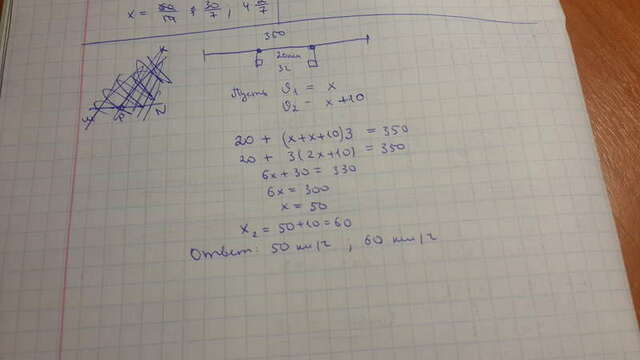 350
20км
3ч
Пусть ϑ₁ = x
ϑ₂ = x+10
20 + (x+x+10)3 = 350
20 + 3(2x+10) = 350
6x+30 = 330
6x = 300
x = 50
x₂ = 50+10=60
Ответ: 50 км/ч , 60 км/ч